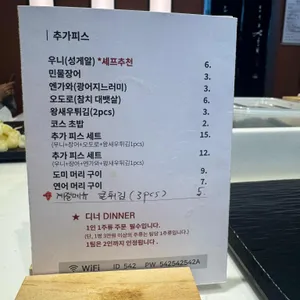 추가피스
우니(성게알) *셰프추천 6.
민물장어 3.
엔가와(광어지느러미) 3.
오도로(참치 대뱃살) 6.
왕새우튀김(2pcs) 3.
코스 초밥 2.
추가 피스 세트 15.
(우니+장어+오도로+왕새우튀김1pcs)
추가 피스 세트 12.
(우니+장어+엔가와+왕새우튀김1pcs)
도미 머리 구이 9.
연어 머리 구이 7.
★계절메뉴 굴튀김 (3pcs) 5.
★ 디너 DINNER
1인 1주류 주문 필수입니다.
(단, 1병 3만원 이상의 주류는 팀당 1주류입니다.)
1팀은 2인까지 인정됩니다.
WiFi ID 542 PW 542542542A